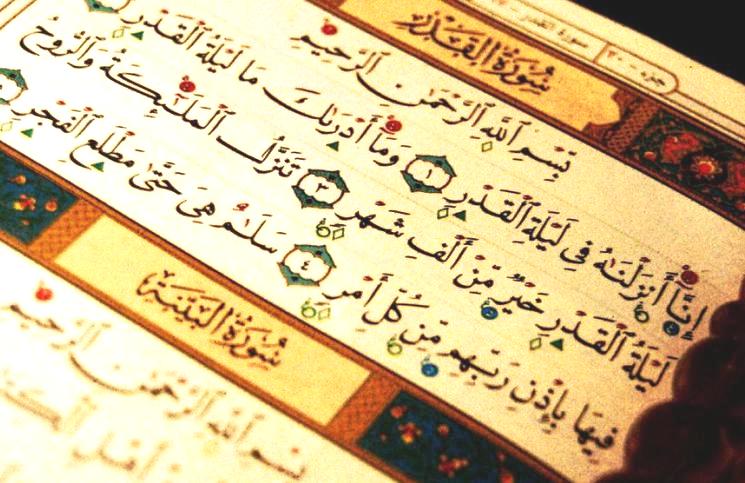 جزء ٣٠ سورة القدر
سُورَةُ الْقَدْرِ
بِسْمِ اللَّهِ الرَّحْمَٰنِ الرَّحِيمِ
إِنَّا أَنزَلْنَاهُ فِي لَيْلَةِ الْقَدْرِ ١ وَمَا أَدْرَاكَ مَا لَيْلَةُ الْقَدْرِ
لَيْلَةُ الْقَدْرِ خَيْرٌ مِّنْ أَلْفِ شَهْرٍ ٣ تَنَزَّلُ الْمَلَائِكَةُ وَالرُّوحُ
فِيهَا بِإِذْنِ رَبِّهِم مِّن كُلِّ أَمْرٍ ٤ سَلَامٌ هِيَ حَتَّىٰ مَطْلَعِ الْفَجْرِ
سُورَةُ الْبَيِّنَةِ
بِسْمِ اللَّهِ الرَّحْمَٰنِ الرَّحِيمِ
أهل